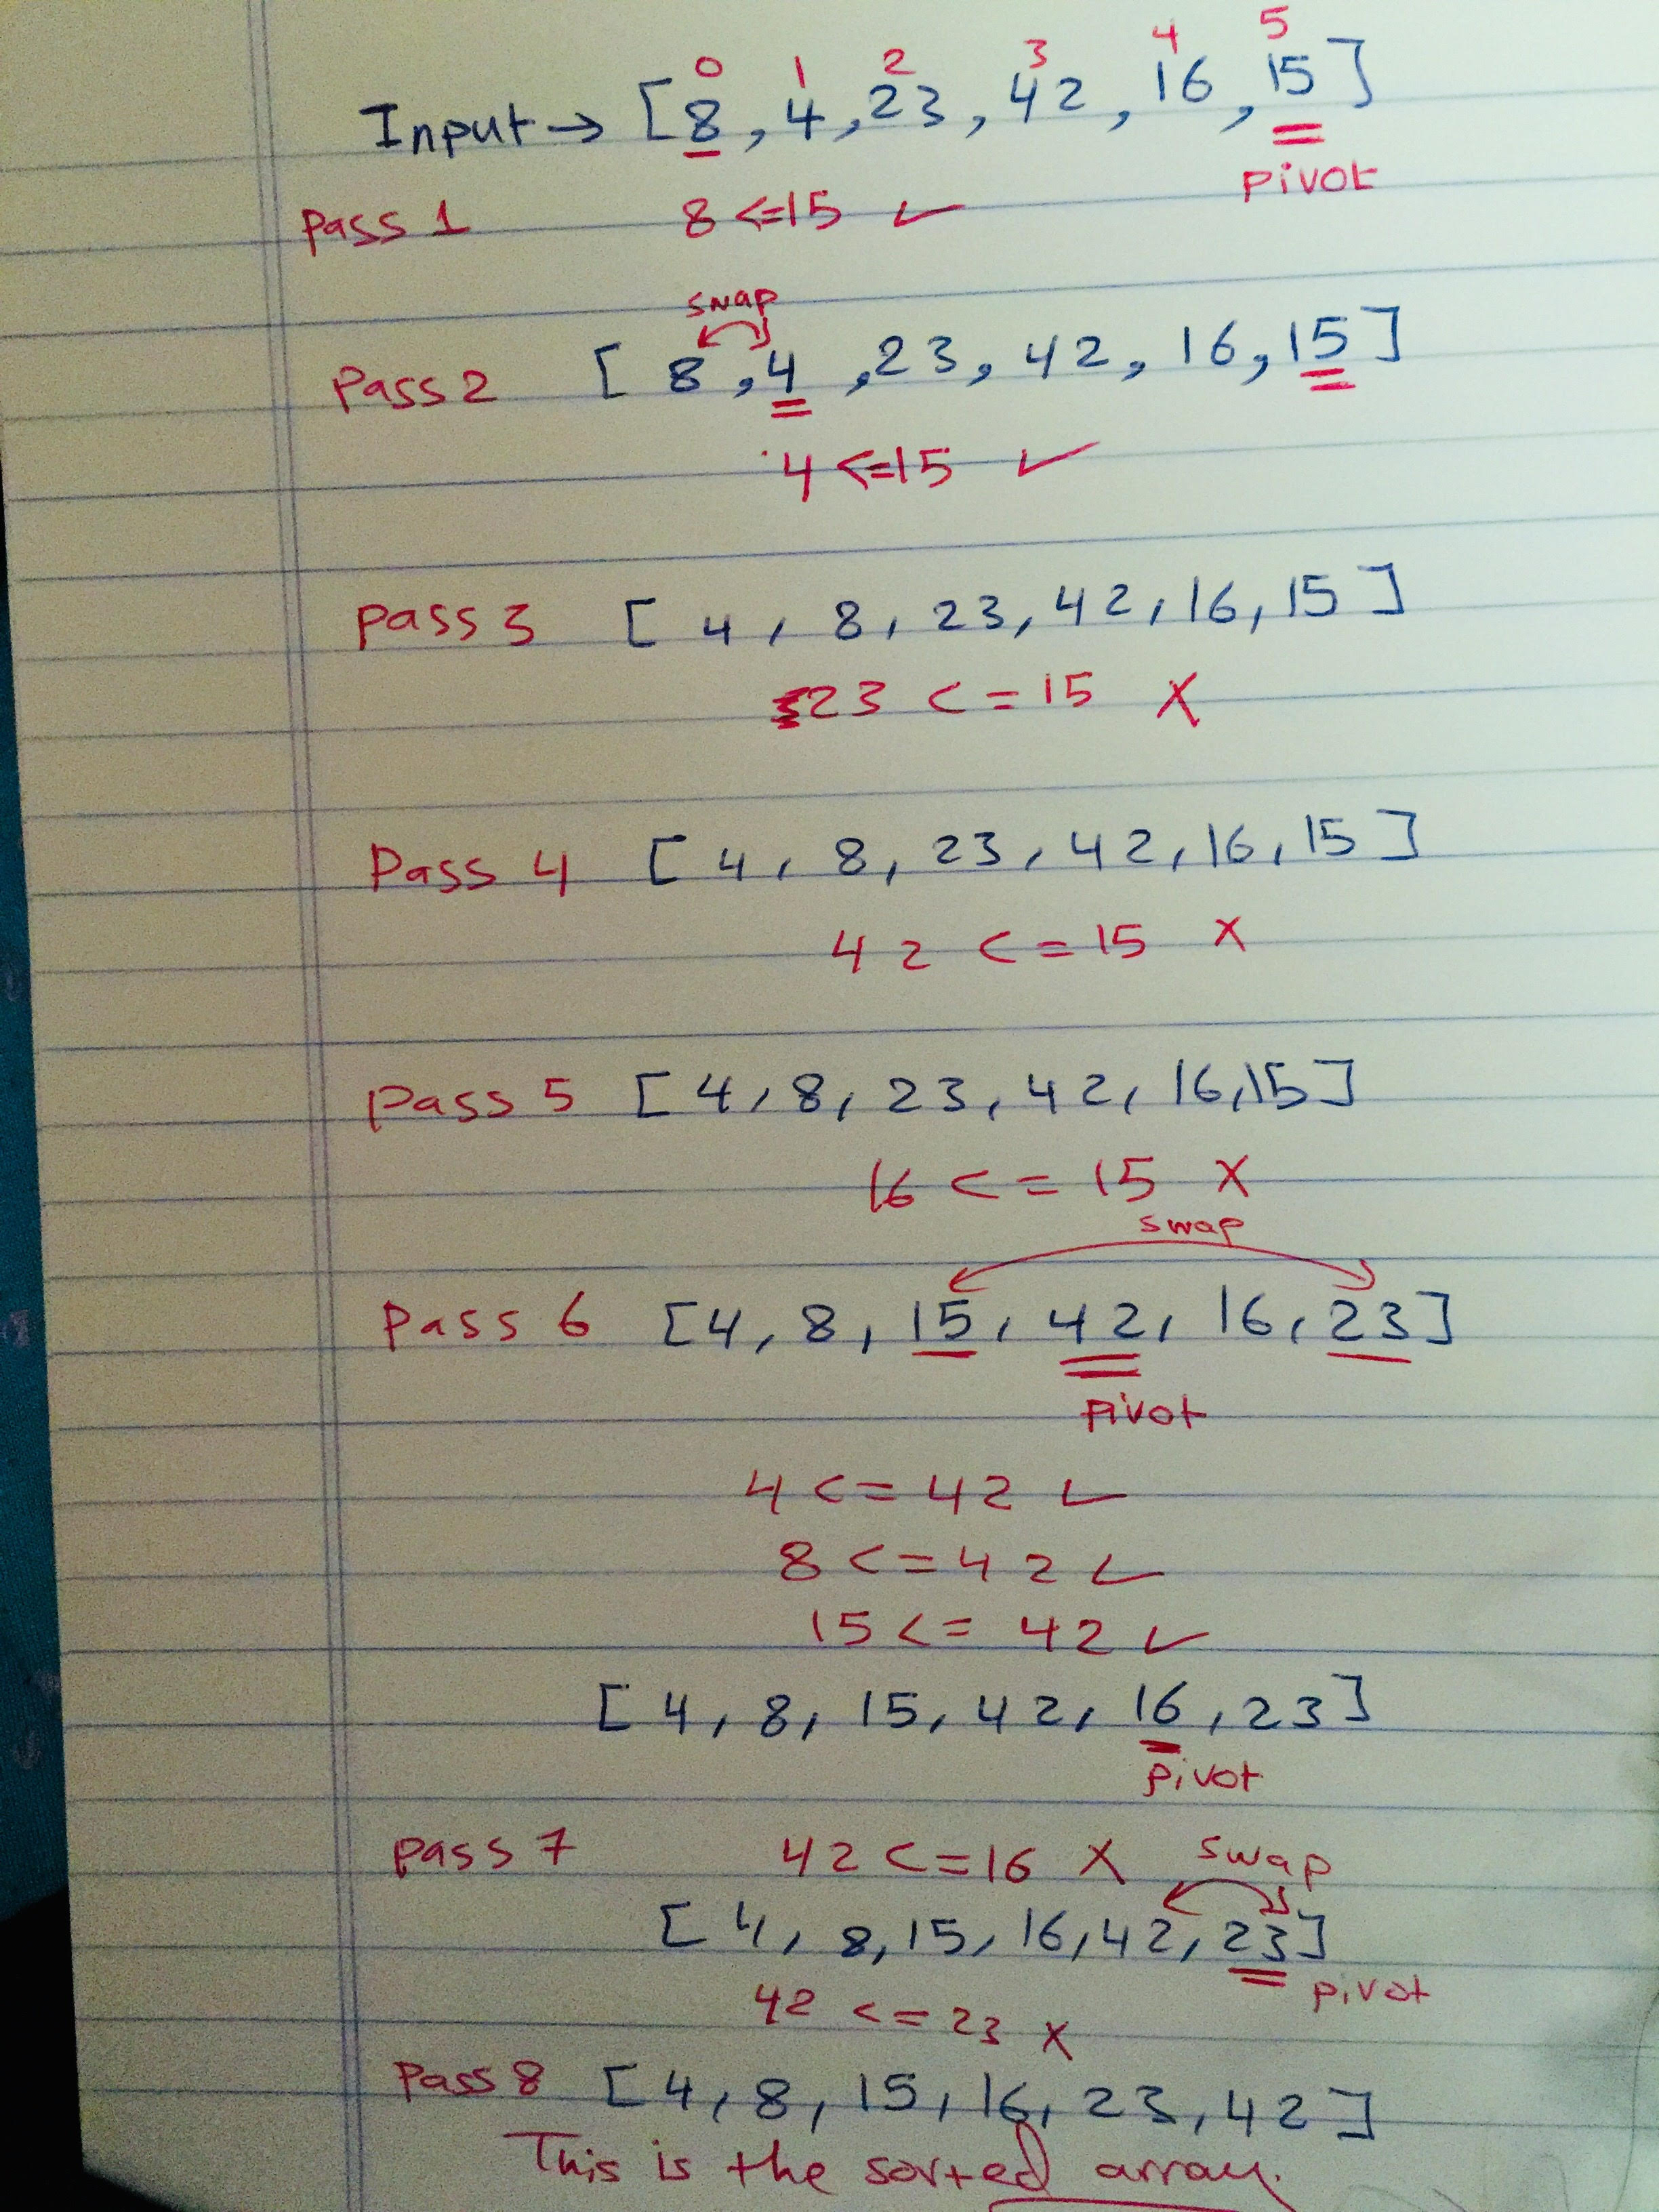 0 1 2 3 4 5
Input → [8, 4, 23, 42, 16, 15]
pivot
Pass 1 8 <= 15 ✓
swap
Pass 2 [8, 4, 23, 42, 16, 15]
4 <= 15 ✓
Pass 3 [4, 8, 23, 42, 16, 15]
23 <= 15 X
Pass 4 [4, 8, 23, 42, 16, 15]
42 <= 15 X
Pass 5 [4, 8, 23, 42, 16, 15]
16 <= 15 X
swap
Pass 6 [4, 8, 15, 42, 16, 23]
Pivot
4 <= 42 ✓
8 <= 42 ✓
15 <= 42 ✓
[4, 8, 15, 42, 16, 23]
pivot
Pass 7 42 <= 16 X swap
[4, 8, 15, 16, 42, 23]
pivot
42 <= 23 X
Pass 8 [4, 8, 15, 16, 23, 42]
This is the sorted array.